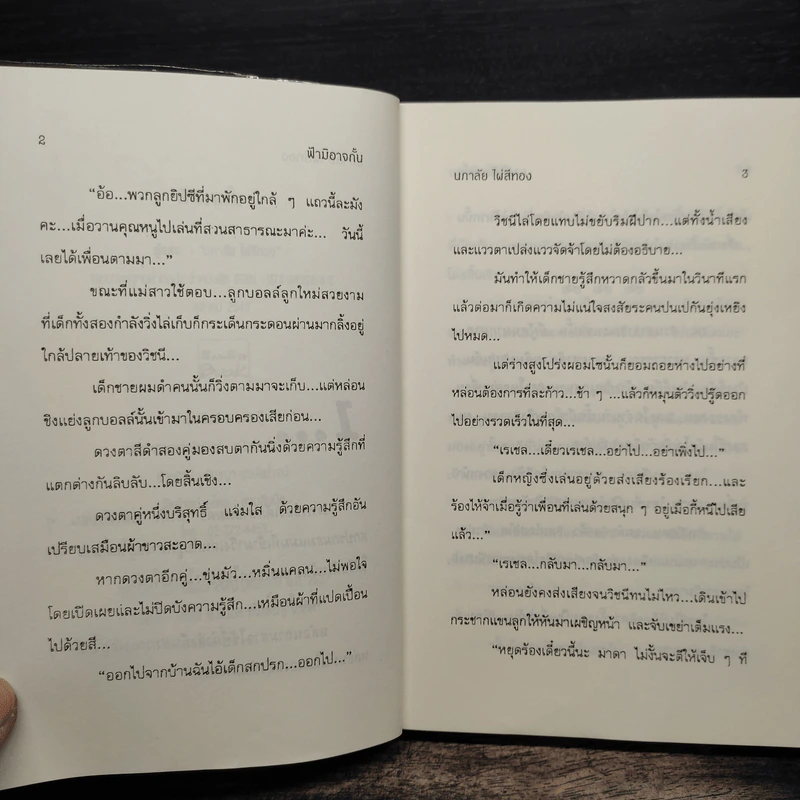 2
ฟ้ามิอาจกั้น
“อ้อ...พวกลูกยิปซีที่มาพักอยู่ใกล้ ๆ แถวนี้ละมัง
คะ...เมื่อวานคุณหนูไปเล่นที่สวนสาธารณะมาค่ะ... วันนี้
เลยได้เพื่อนตามมา...”
ขณะที่แม่สาวใช้ตอบ...ลูกบอลล์ลูกใหม่สวยงาม
ที่เด็กทั้งสองกำลังวิ่งไล่เก็บก็กระเด็นกระดอนผ่านมากลิ้งอยู่
ใกล้ปลายเท้าของวิชนี...
เด็กชายผมดำคนนั้นก็วิ่งตามมาจะเก็บ...แต่หล่อน
ชิงแย่งลูกบอลล์นั้นเข้ามาในครอบครองเสียก่อน...
ดวงตาสีดำสองคู่มองสบตากันนิ่งด้วยความรู้สึกที่
แตกต่างกันลิบลับ...โดยสิ้นเชิง...
ดวงตาคู่หนึ่งบริสุทธิ์ แจ่มใส ด้วยความรู้สึกอัน
เปรียบเสมือนผ้าขาวสะอาด...
หากดวงตาอีกคู่...ขุ่นมัว...หมิ่นแคลน...ไม่พอใจ
โดยเปิดเผยและไม่ปิดบังความรู้สึก...เหมือนผ้าที่แปดเปื้อน
ไปด้วยสี...
“ออกไปจากบ้านฉันไอ้เด็กสกปรก...ออกไป...”
นภาลัย ไผ่สีทอง
3
วิชนีไล่โดยแทบไม่ขยับริมฝีปาก...แต่ทั้งน้ำเสียง
และแววตาเปล่งแววจัดจ้าโดยไม่ต้องอธิบาย...
มันทำให้เด็กชายรู้สึกหวาดกลัวขึ้นมาในวินาทีแรก
แล้วต่อมาก็เกิดความไม่แน่ใจสงสัยระคนปนเปกันยุ่งเหยิง
ไปหมด...
แต่ร่างสูงโปร่งผอมโซนั้นก็ยอมถอยห่างไปอย่างที่
หล่อนต้องการทีละก้าว...ช้า ๆ ...แล้วก็หมุนตัววิ่งปรู๊ดออก
ไปอย่างรวดเร็วในที่สุด...
“เรเชล...เดี๋ยวเรเชล...อย่าไป...อย่าเพิ่งไป...”
เด็กหญิงซึ่งเล่นอยู่ด้วยส่งเสียงร้องเรียก...และ
ร้องไห้จ้าเมื่อรู้ว่าเพื่อนที่เล่นด้วยสนุก ๆ อยู่เมื่อกี้หนีไปเสีย
แล้ว...”
“เรเชล...กลับมา...กลับมา...”
หล่อนยังคงส่งเสียงจนวิชนีทนไม่ไหว...เดินเข้าไป
กระชากแขนลูกให้หันมาเผชิญหน้า และจับเขย่าเต็มแรง...
“หยุดร้องเดี๋ยวนี้นะ มาดา ไม่งั้นจะตีให้เจ็บ ๆ ที